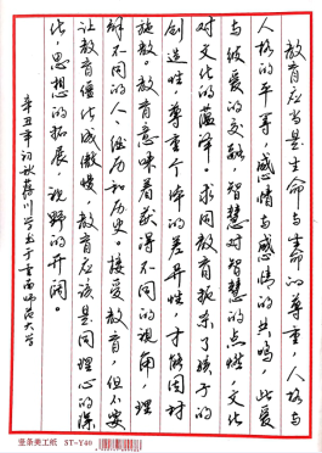 教育应当是生命与生命的尊重，人格与
人格的平等，感情与感情的共鸣，此爱
与彼爱的交融，智慧对智慧的点燃，文化
对文化的蕴泽。求同教育扼杀了孩子的
创造性，尊重个体的差异性，才能因材
施教。教育意味着获得不同的视角，理
解不同的人、经历和历史。接受教育，但不要
让教育僵化成傲慢，教育应该是同理心的深
化，思想的拓展，视野的开阔。
辛丑年初秋蒋川学书于重西师范大学
竖条美工纸 ST-Y40